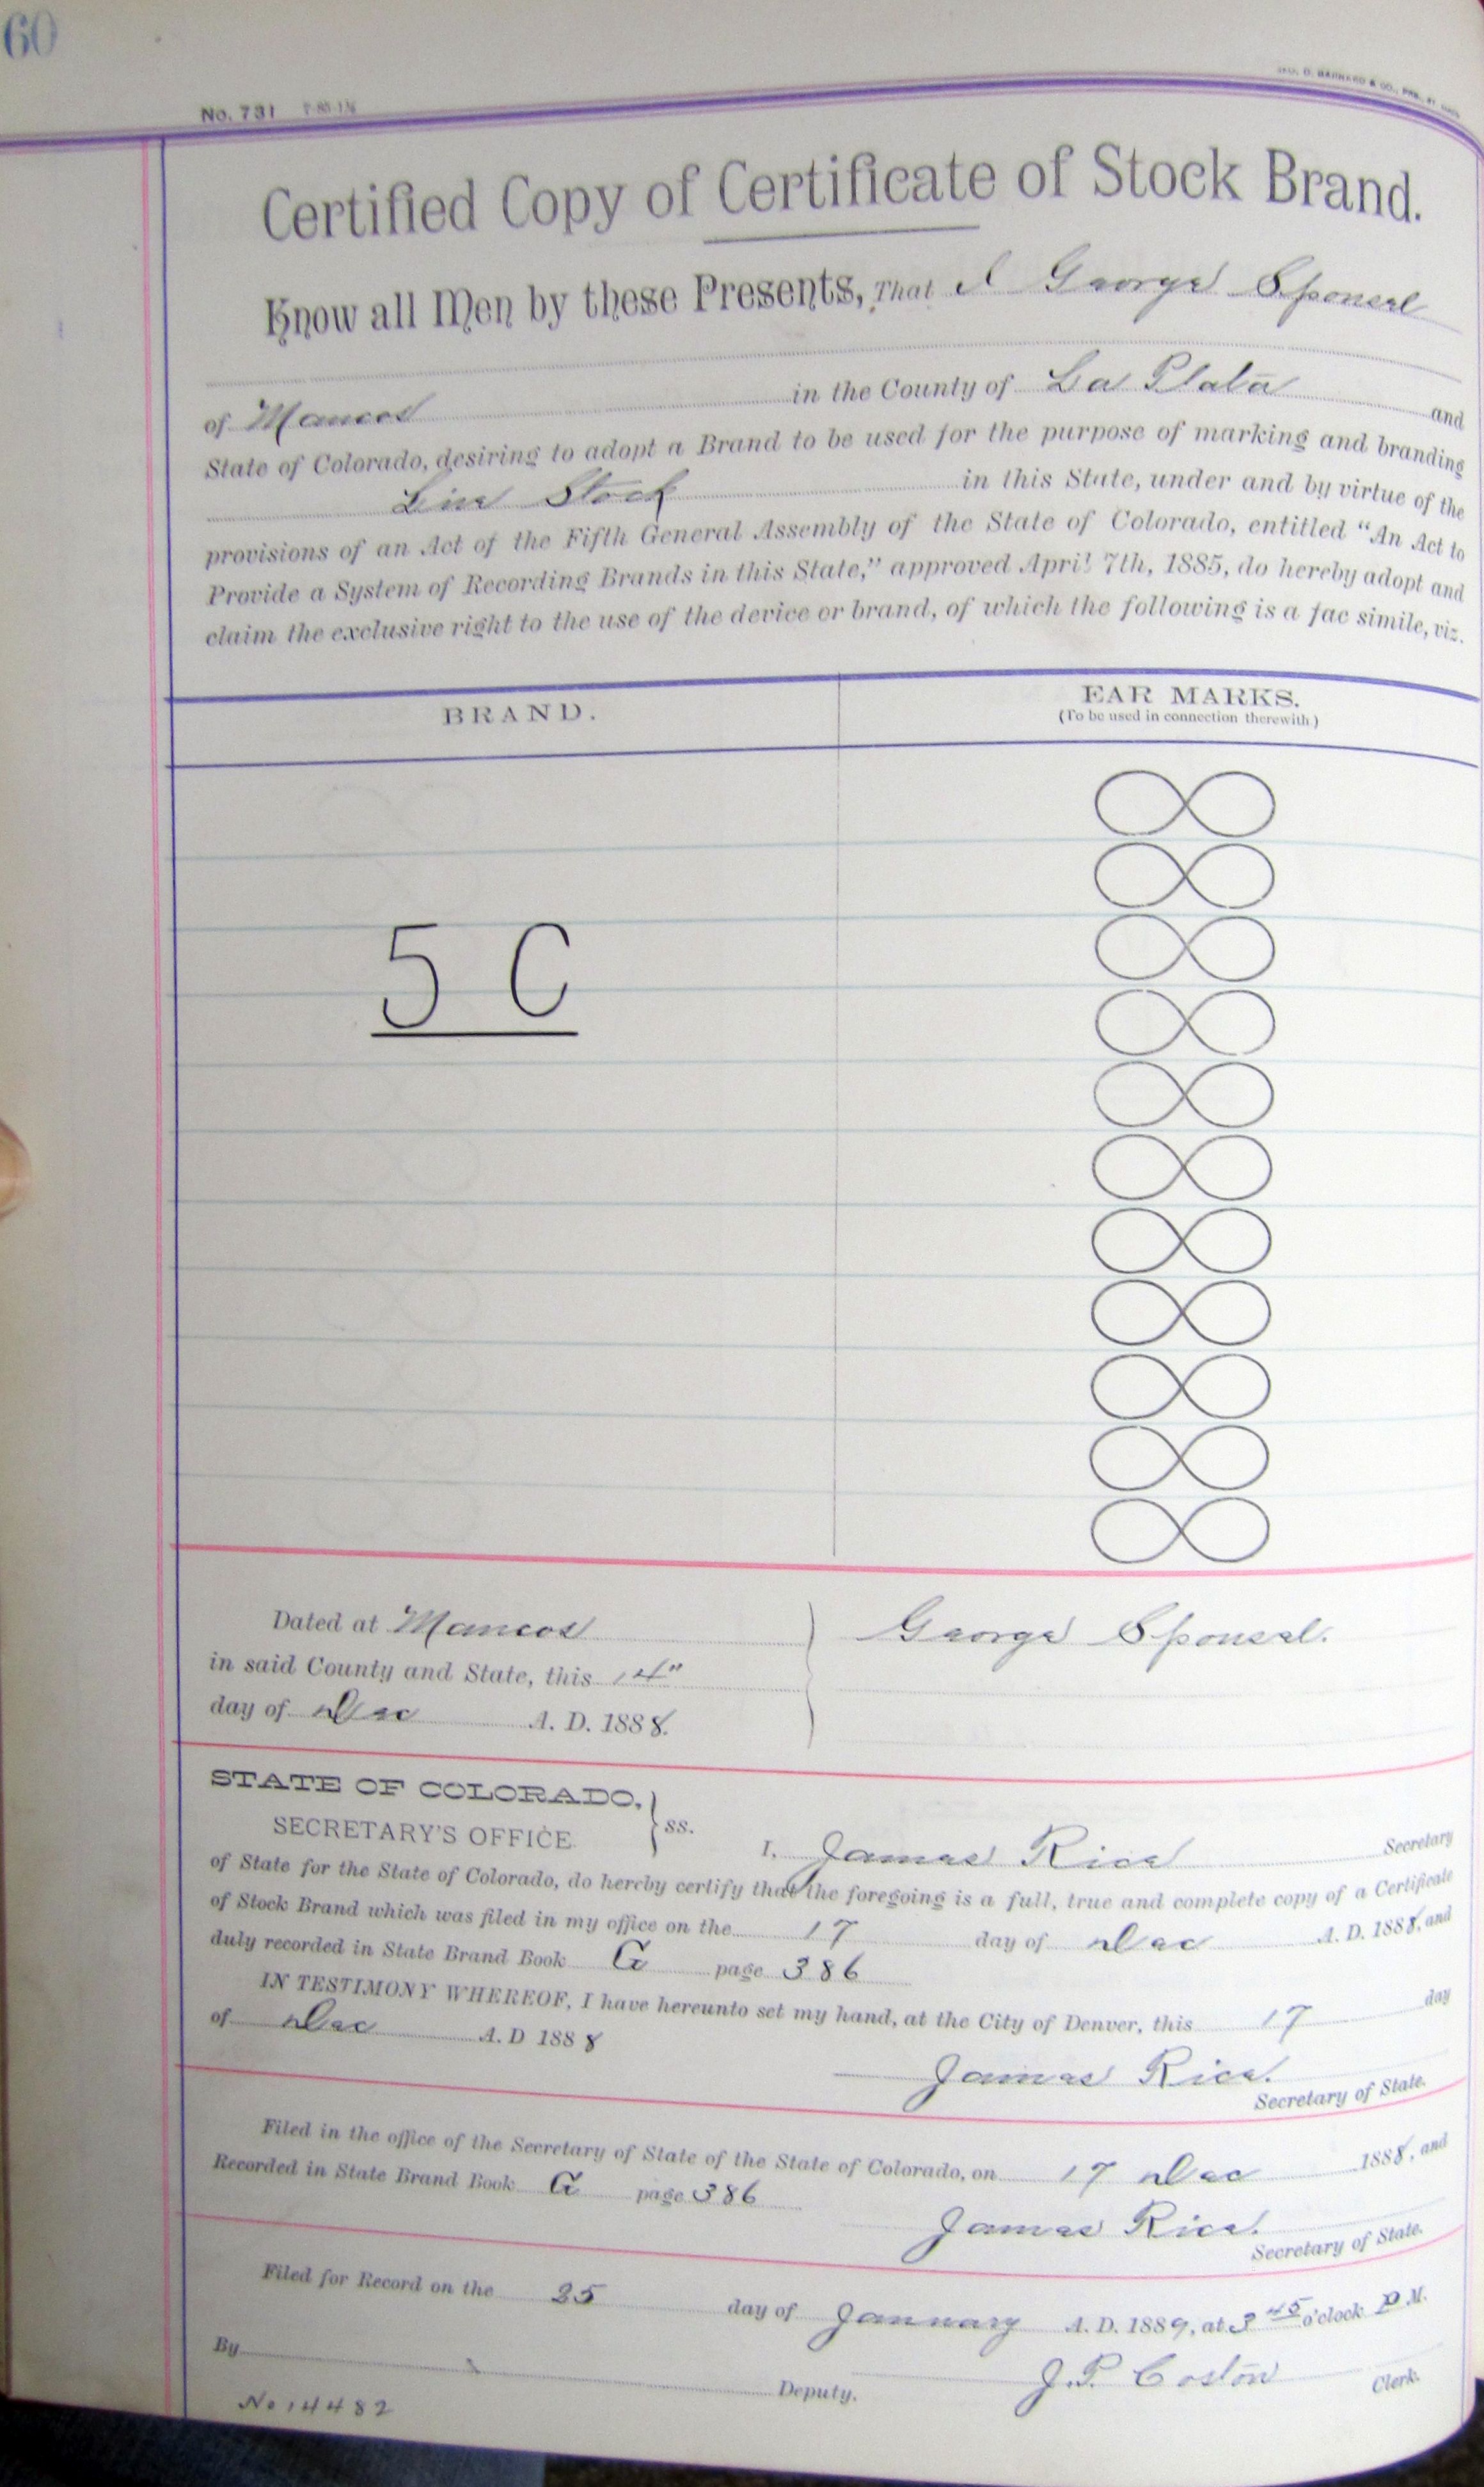 60
No. 731 7-80-1½
Certified Copy of Certificate of Stock Brand.
Know all Men by these Presents, That I George Sponsel
of Mancos in the County of La Plata and
State of Colorado, desiring to adopt a Brand to be used for the purpose of marking and branding
Live Stock in this State, under and by virtue of the
provisions of an Act of the Fifth General Assembly of the State of Colorado, entitled "An Act to
Provide a System of Recording Brands in this State," approved April 7th, 1885, do hereby adopt and
claim the exclusive right to the use of the device or brand, of which the following is a fac simile, viz.
BRAND. EAR MARKS.
(To be used in connection therewith.)
5 C
Dated at Mancos George Sponsel.
in said County and State, this 14"
day of Dec A. D. 1888.
STATE OF COLORADO,
SECRETARY'S OFFICE ss.
I, James Rice Secretary
of State for the State of Colorado, do hereby certify that the foregoing is a full, true and complete copy of a Certificate
of Stock Brand which was filed in my office on the 17 day of Dec A. D. 1888, and
duly recorded in State Brand Book G page 386
IN TESTIMONY WHEREOF, I have hereunto set my hand, at the City of Denver, this 17 day
of Dec A. D 1888
James Rice.
Secretary of State.
Filed in the office of the Secretary of State of the State of Colorado, on 17 Dec 1888, and
Recorded in State Brand Book G page 386
James Rice.
Secretary of State.
Filed for Record on the 25 day of January A. D. 1889, at 3 45 o'clock P M.
By Deputy. J. P. Coston Clerk.
No 14482